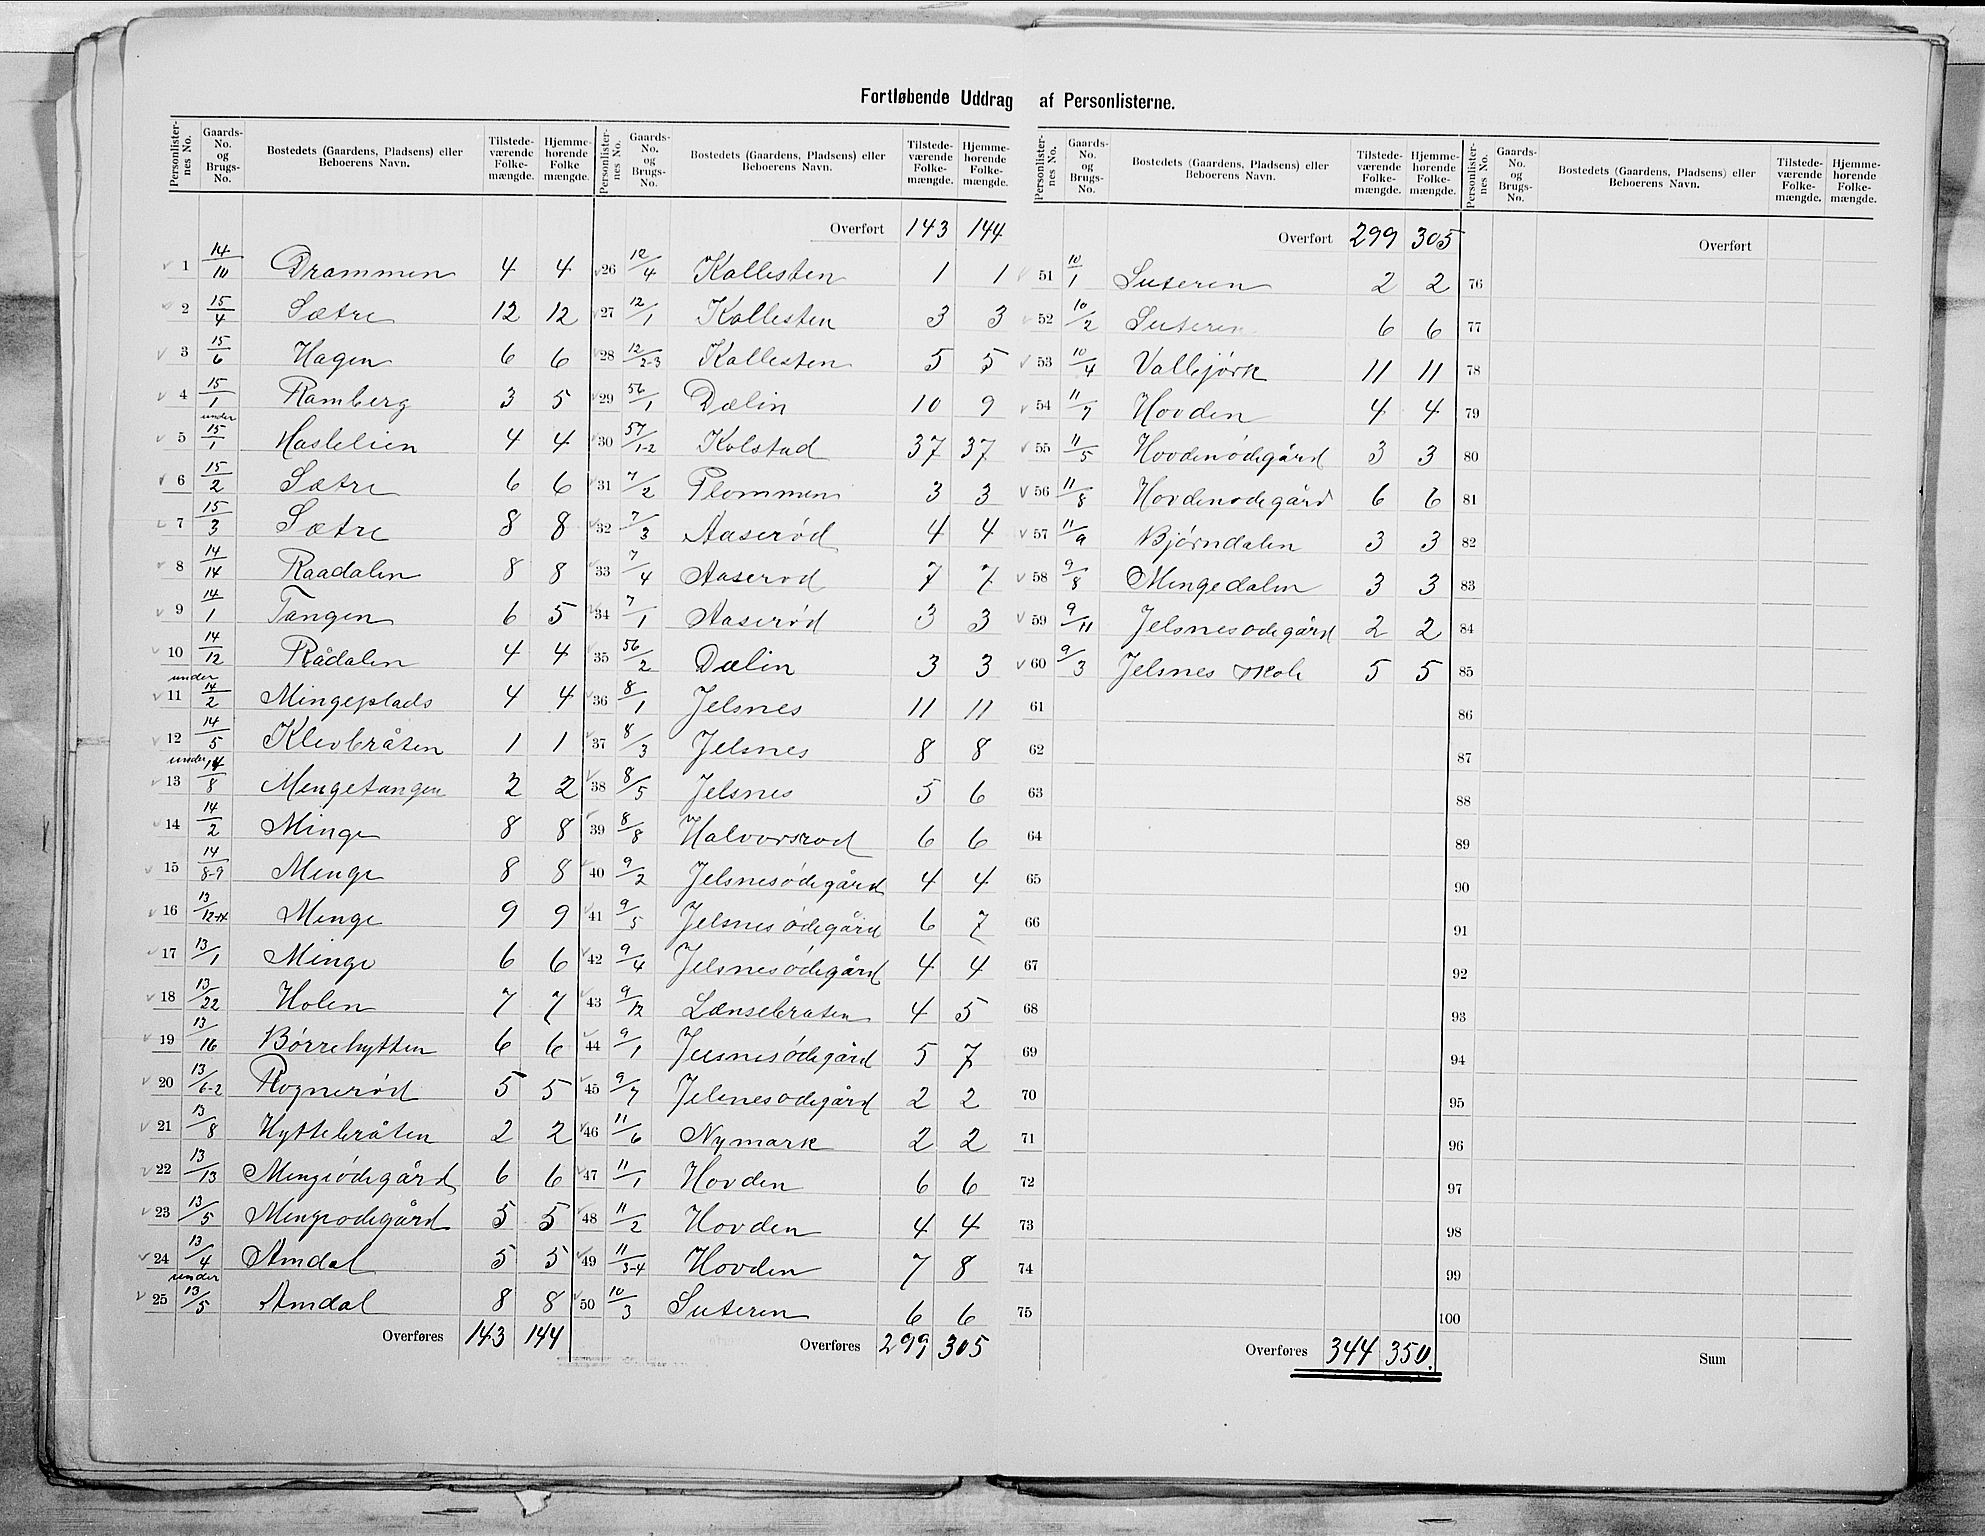 Fortløbende Uddrag af Personlisterne.
Personlister-nes No. Gaards-No. og Brugs-No. Bostedets (Gaardens, Pladsens) eller Beboerens Navn. Tilstede-værende Folke-mængde. Hjemme-hørende Folke-mængde.
1 14/10 Drammen 4 4
2 15/4 Sætre 12 12
3 15/6 Hagen 6 6
4 15/1 Ramberg 3 5
5 under 15/1 Haslelien 4 4
6 15/2 Sætre 6 6
7 15/3 Sætre 8 8
8 14/14 Raadalen 8 8
9 14/1 Tangen 6 5
10 14/12 Rådalen 4 4
11 under 14/2 Mingeplads 4 4
12 14/5 Klevbråten 1 1
13 under 14/8 Mengetangen 2 2
14 14/2 Minge 8 8
15 14/8-9 Menge 8 8
16 13/12-14 Menge 9 9
17 13/1 Minge 6 6
18 13/22 Holen 7 7
19 13/16 Børrehytten 6 6
20 13/6-2 Rognerød 5 5
21 13/8 Hyttebråten 2 2
22 13/13 Mengeødegård 6 6
23 13/5 Mengeodegård 5 5
24 13/4 Amdal 5 5
25 under 13/5 Amdal 8 8
Overføres 143 144
Personlister-nes No. Gaards-No. og Brugs-No. Bostedets (Gaardens, Pladsens) eller Beboerens Navn. Tilstede-værende Folke-mængde. Hjemme-hørende Folke-mængde.
Overført 143 144
26 12/4 Kallesten 1 1
27 12/1 Kallesten 3 3
28 12/2-3 Kallesten 5 5
29 56/1 Dælin 10 9
30 57/1-2 Kolstad 37 37
31 7/2 Plommen 3 3
32 7/3 Aaserød 4 4
33 7/4 Aaserod 7 7
34 7/1 Aaserød 3 3
35 56/2 Dælin 3 3
36 8/1 Jelsnes 11 11
37 8/3 Jelsnes 8 8
38 8/5 Jelsnes 5 6
39 8/8 Halvorsrod 6 6
40 9/2 Jelsnesødegård 4 4
41 9/5 Jelsnesødegård 6 7
42 9/4 Jelsnesødegård 4 4
43 9/12 Lænsebraten 4 5
44 9/1 Jelsnesødegård 5 7
45 9/7 Jelsnesodegård 2 2
46 11/6 Nymark 2 2
47 11/1 Hovden 6 6
48 11/2 Hovden 4 4
49 11/3-4 Hovden 7 8
50 10/3 Suteren 6 6
Overføres 299 305
Personlister-nes No. Gaards-No. og Brugs-No. Bostedets (Gaardens, Pladsens) eller Beboerens Navn. Tilstede-værende Folke-mængde. Hjemme-hørende Folke-mængde.
Overført 299 305
51 10/1 Suteren 2 2
52 10/2 Suteren 6 6
53 10/4 Vallbjørk 11 11
54 11/7 Hovden 4 4
55 11/5 Hovdenødegård 3 3
56 11/8 Hovdenodegård 6 6
57 11/9 Bjørndalen 3 3
58 9/8 Mingedalen 3 3
59 9/11 Jelsnesodegård 2 2
60 9/3 Jelsnes skole 5 5
61
62
63
64
65
66
67
68
69
70
71
72
73
74
75
Overføres 344 350.
Personlister-nes No. Gaards-No. og Brugs-No. Bostedets (Gaardens, Pladsens) eller Beboerens Navn. Tilstede-værende Folke-mængde. Hjemme-hørende Folke-mængde.
Overført
76
77
78
79
80
81
82
83
84
85
86
87
88
89
90
91
92
93
94
95
96
97
98
99
100
Sum